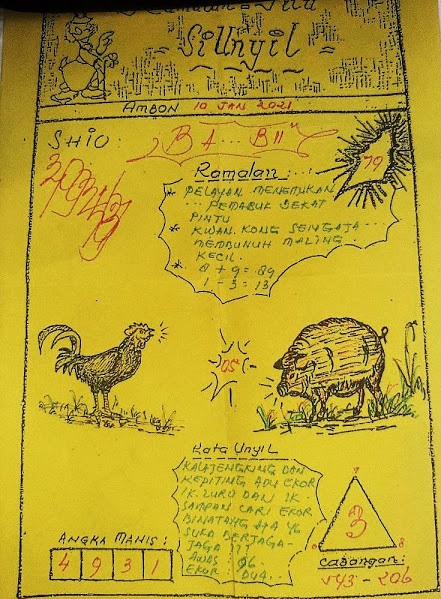 SiUnyil
AMBON 10 JAN 2021
SHIO:
BA... BII
79
Ramalan:
* PELAYAN MENEMUKAN
PEMABUK DEKAT
PINTU
* KWAN KONG SENGAJA
MEMBUNUH MALING
KECIL.
* 8 + 9 = 89
1 - 3 = 13
05
Kata UNYIL
KALAJENGKING DAN
KEPITING ADU EKOR
IK. LURU DAN IK
SAMPAN CARI EKOR
BINATANG APA YG
SUKA BERJAGA-
JAGA ???
AWAS : 96
EKOR :
ANGKA MANIS:
4 9 3 1
AI
3
8
Cadangan:
543 - 206